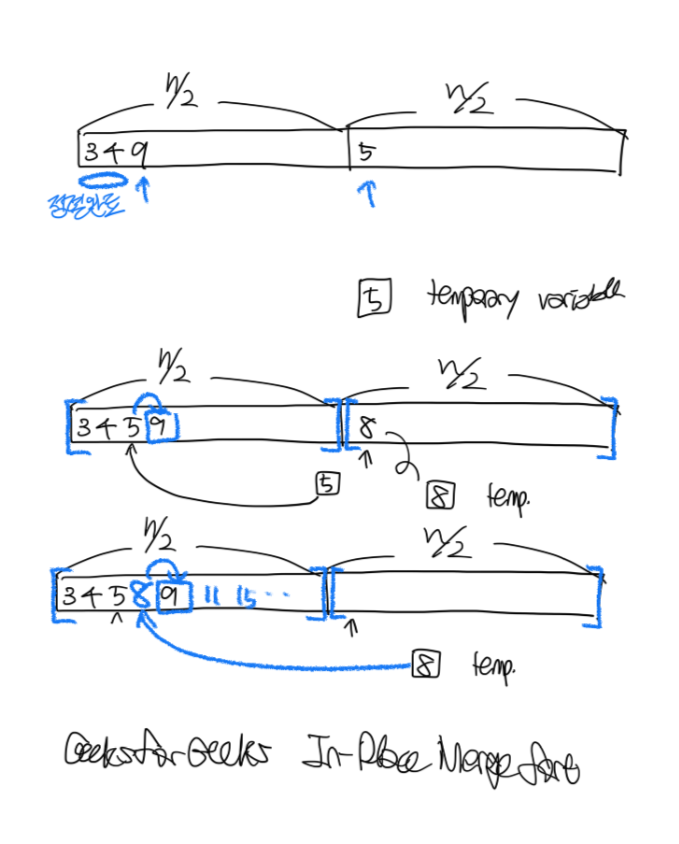 n/2 n/2
3 4 9 5
정렬완료
5 temporary variable
n/2 n/2
3 4 5 9 8
5 8 temp.
n/2 n/2
3 4 5 8 9 11 15 ...
8 temp.
GeeksforGeeks In-Place Merge Sort